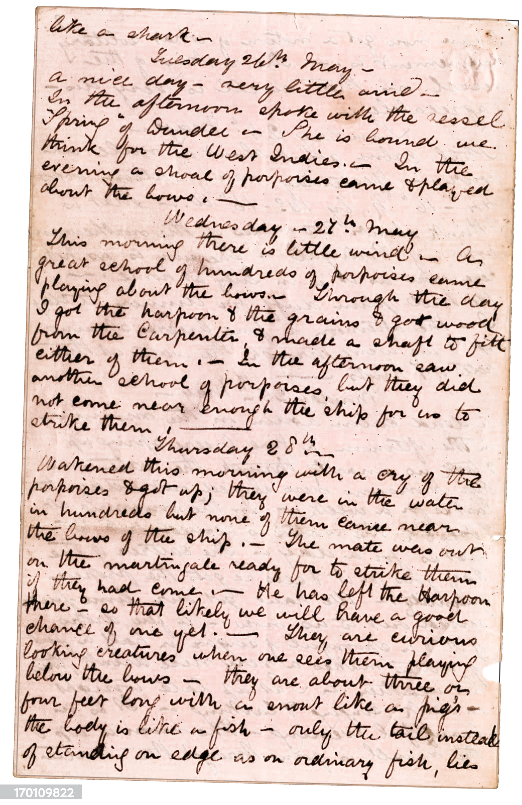 like a shark –
Tuesday 26th May –
a nice day – very little wind –
In the afternoon spoke with the vessel
"Spring" of Dundee – She is bound we
think for the West Indies. – In the
evening a shoal of porpoises came & played
about the bows. –
Wednesday – 27th May
This morning there is little wind – A
great school of hundreds of porpoises came
playing about the bows – Through the day
I got the harpoon & the grains & got wood
from the Carpenter, & made a shaft to fitt
either of them. – In the afternoon saw
another school of porpoises, but they did
not come near enough the ship for us to
strike them. –
Thursday 28th –
Wakened this morning with a cry of the
porpoises & got up; they were in the water
in hundreds but none of them came near
the bows of the ship. – The mate was out
on the martingale ready for to strike them
if they had come. – He has left the Harpoon
there – so that likely we will have a good
chance of one yet. – They are curious
looking creatures when one sees them playing
below the bows – they are about three or
four feet long with a snout like a pigs –
the body is like a fish – only the tail instead
of standing on edge as on ordinary fish, lies
170109822